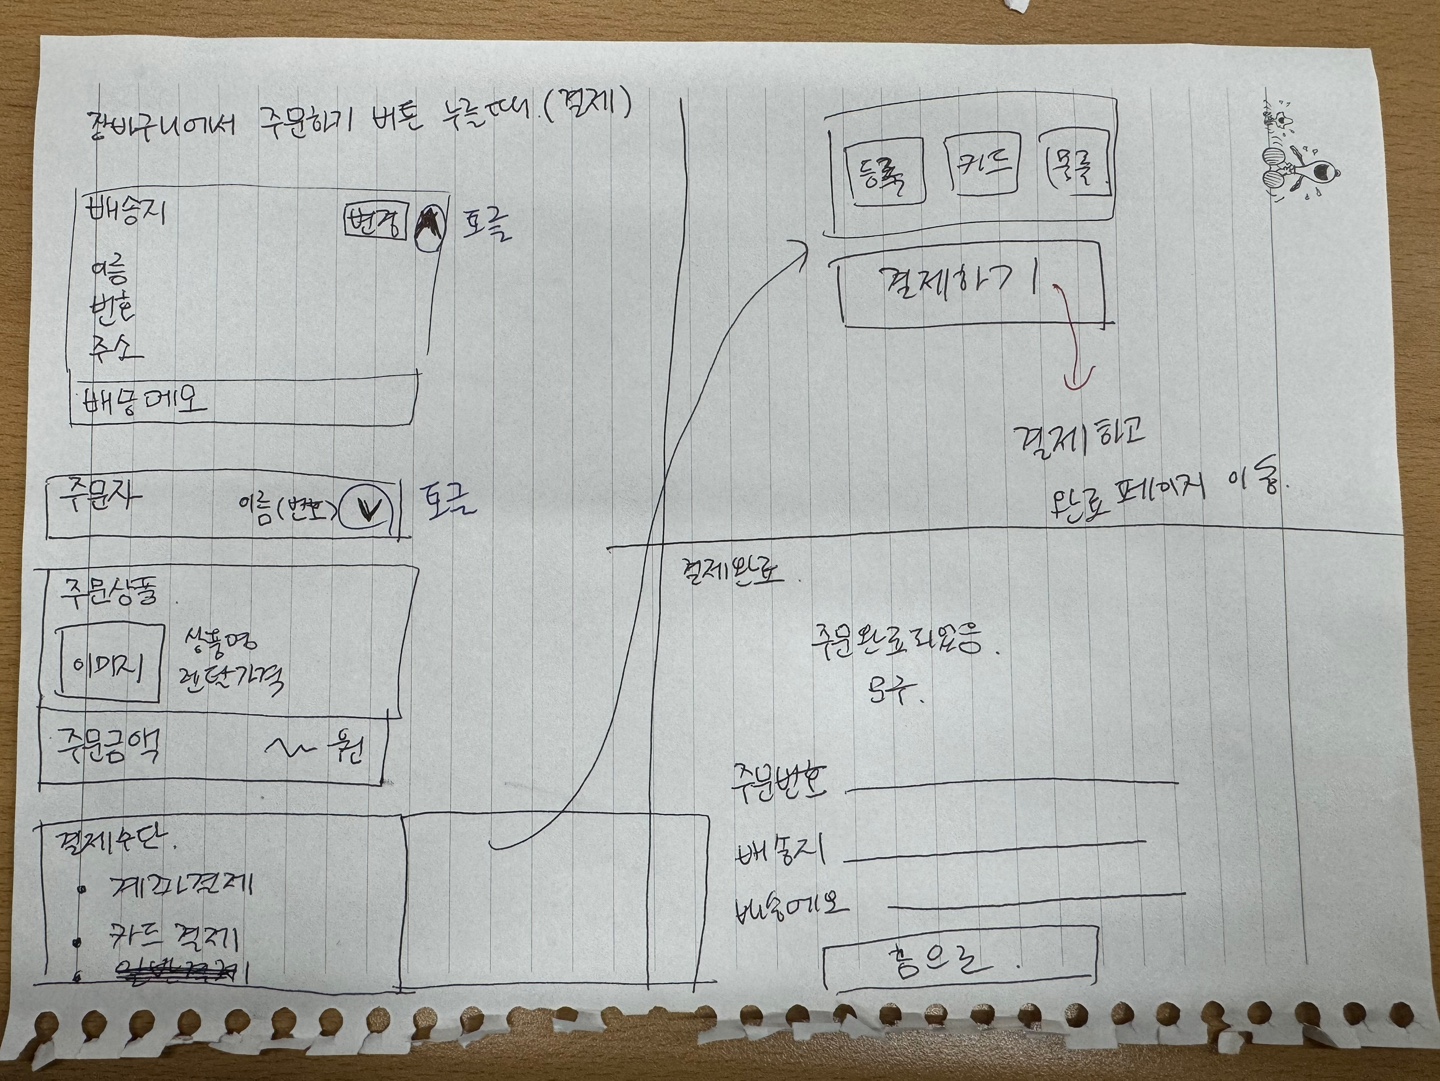 장바구니에서 주문하기 버튼 누를때.(결제)
배송지
변경
토글
이름
번호
주소
배송메모
주문자
이름(번호)
토글
주문상품.
이미지
상품명
렌탈가격
주문금액
원
결제수단.
계좌결제
카드 결제
등록
카드
목록
결제하기
결제하고
완료페이지 이동.
결제완료.
주문완료되었음.
문구.
주문번호
배송지
배송메모
홈으로.